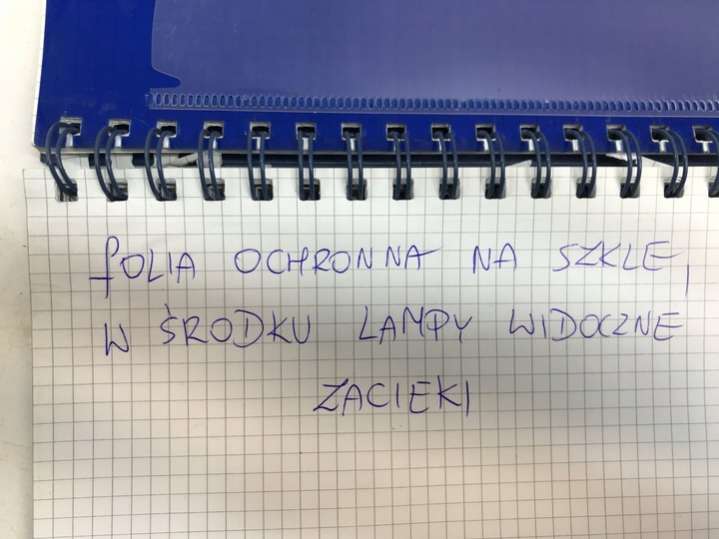 fOLIA OCHRONNA NA SZKLE,
W ŚRODKU LAMPY WIDOCZNE
ZACIEKI